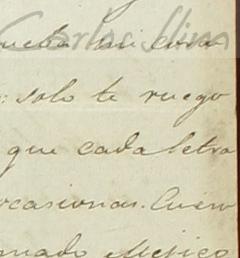 Carlos Slim
mi cora
solo te ruego
que cada letra
ocasionar. Cuern
mado Mejico